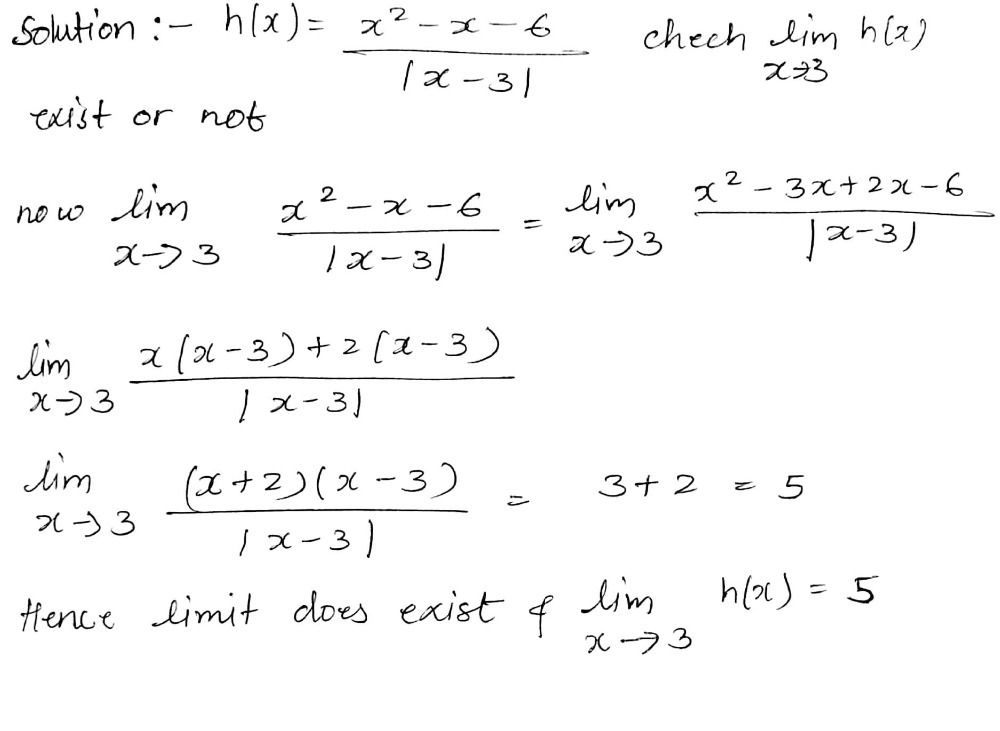 Solution :- h(x) = x² - x - 6 / |x - 3| chech lim x→3 h(x)
exist or not
now lim x→3 x² - x - 6 / |x - 3| = lim x→3 x² - 3x + 2x - 6 / |x - 3|
lim x→3 x(x - 3) + 2(x - 3) / |x - 3|
lim x→3 (x + 2)(x - 3) / |x - 3| = 3 + 2 = 5
Hence limit does exist & lim x→3 h(x) = 5